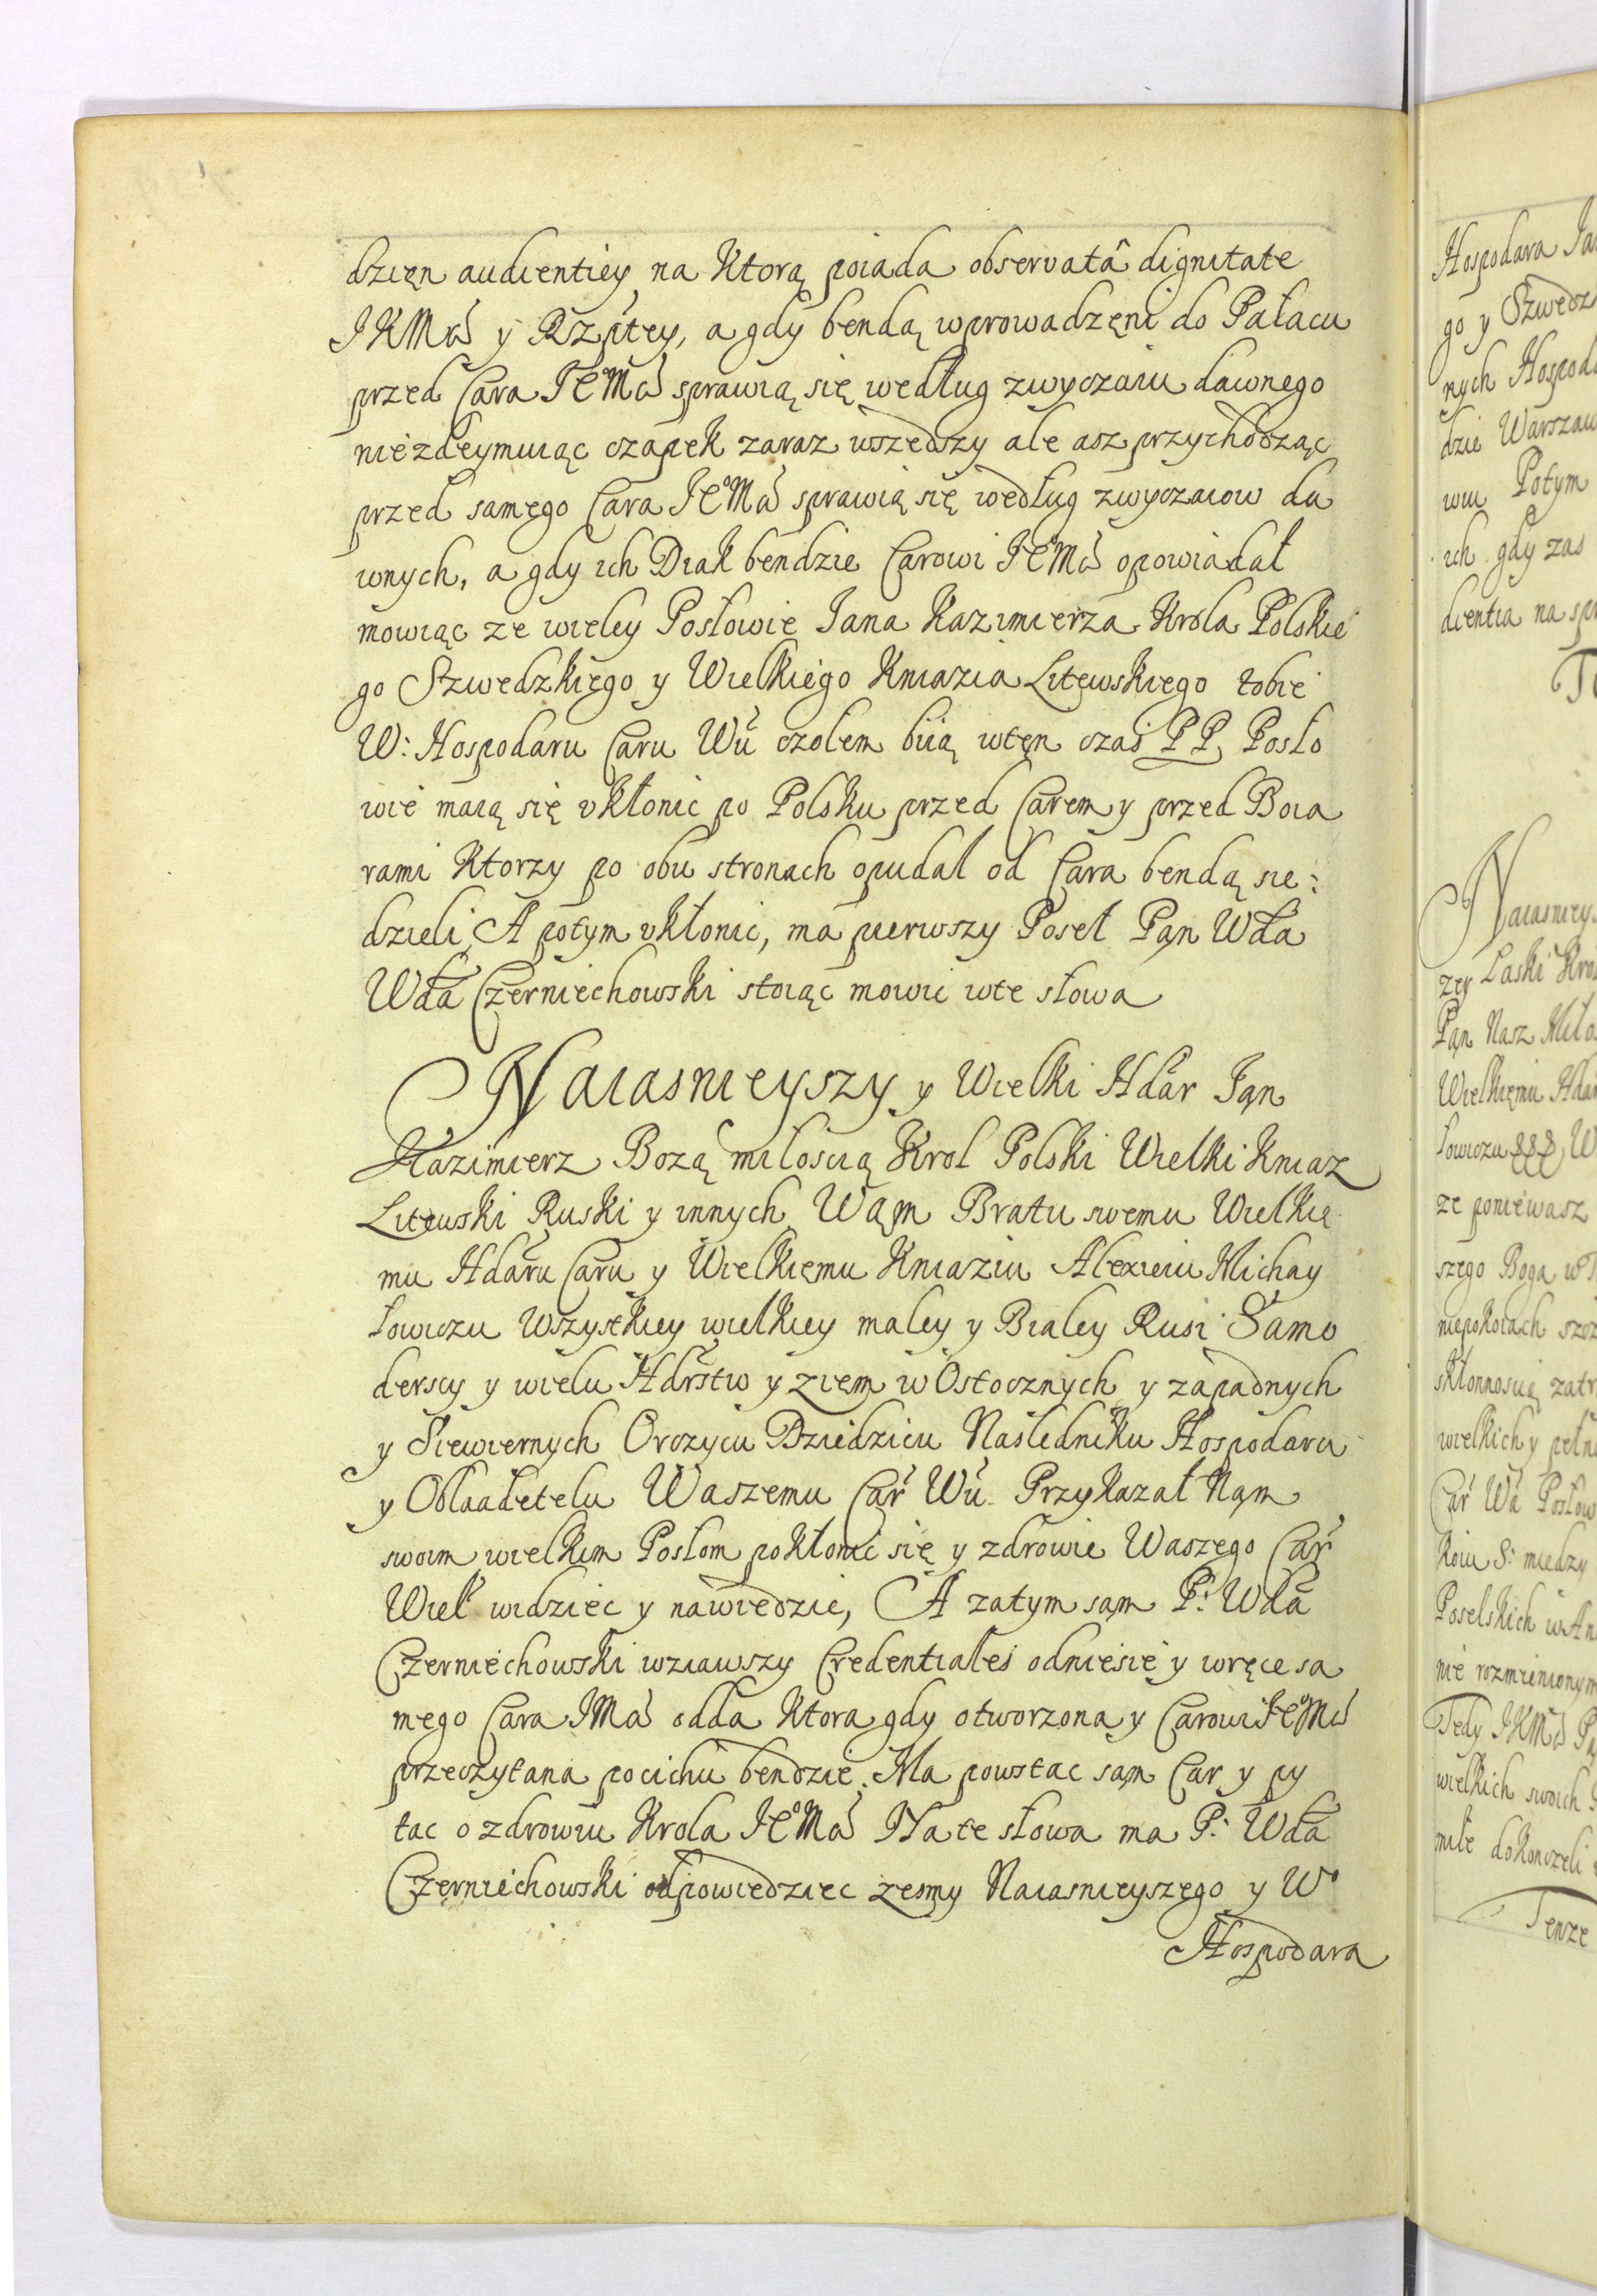 dzięn audientiey na Ktorą poiada observatâ dignitate
JKMći y Rzpltey, a gdy bendą wprowadzęni do Pałacu
przed Cara JEMći sprawią się według zwyczaiu dawnego
niezdeymuiąc czapek zaraz wszedszy ale asz przychodząc
przed samęgo Cara JE°Mći sprawią się według zwyczaiow da
wnych, a gdy ich Diak bendzie Carowi JE°Mći opowiadał
mowiąc ze wielcy Posłowie Jana Kazimierza Krola Polskie
go Szwedzkięgo y Wielkiego Kniazia Litewskiego tobie
W: Hospodaru Caru Wu czołem biią wtęn czas PP, Posło
wie maią się vkłonic po Polsku przed Carem y przed Boia
rami Ktorzy po obu stronach opudal od Cara bendą sie:
dzieli, A potym vkłonic, ma pierwszy Poseł Pąn Wda
Wda Czerniechowski stoiąc mowic wte słowa
Naiasnieyszy y Wielki Hdar Jąn
Kazimierz Bozą miłoscią Krol Polski Wielki Kniaz
Litewski Ruski y innych Wąm Bratu swemu Wielkie
mu Hdaru Caru y Wielkięmu Kniaziu Alexieiu Michay
łowiczu Wszystkiey wielkiey małey y Białey Rusi Samo
derscy y wielu Hdrstw y ziem wOstocznych y zapadnych
y Siewiernych Oyczycu Dziedzicu Naslednikυ Hospodaru
y Obłaadetelu Waszemu Car Wu Przykazał Nąm
swoim wielkim Posłom pokłonic się y zdrowie Waszego Car
Wiel widziec y nawiedzic, A zatym sąm P: Wda
Czerniechowski wziawszy Credentiales odniesię y wręce sa
mego Cara JMći odda Ktora gdy otworzona y Carowi JE°Mći
przeczytana pocichu bendzie. Ma powstac sąm Car y py
tac o zdrowiu Krola JE°Mći Na te słowa ma P: Wda
Czerniechowski odpowiedziec zesmy Naiasnieyszego y W°
Hospodara
Hospodara
go y Szwedz
nych Hospod
dzie Warszaw
wiu Potym
ich gdy zas
dientia na
Naiasniey
zey Łaski Kro
Pąn Nasz Miło
Wielkięmu Hdar
łowiczu W
ze poniewasz
szego Boga
niepokoiach
skłonnoscią zatr
wielkich y
Car Wa Posłow
Koiu S: miedzy
Poselskich wAn
nie rozmienionym
Tedy JKMć
wielkich swoich
miłe dokonczeli
Tenze